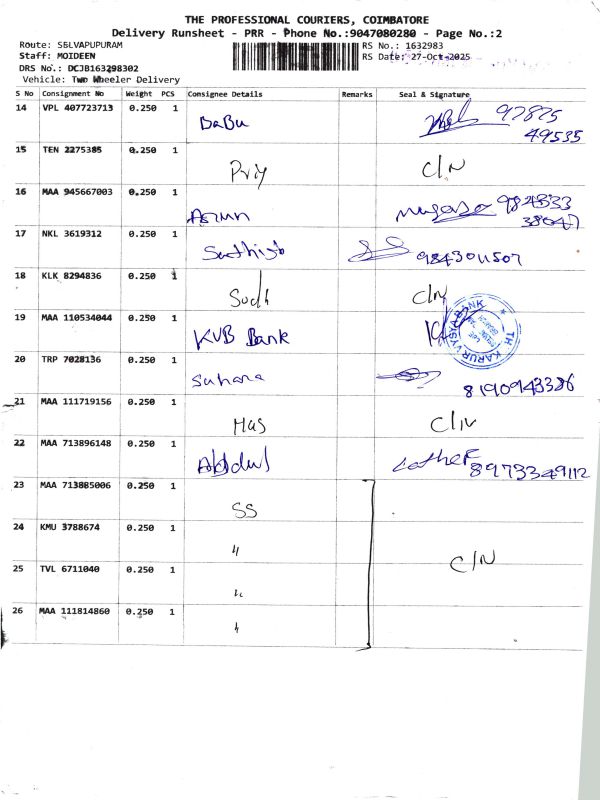 THE PROFESSIONAL COURIERS, COIMBATORE
Delivery Runsheet - PRR - Phone No.:9047080280 - Page No.:2
Route: SELVAPUPURAM
RS No.: 1632983
Staff: MOIDEEN
RS Date: 27-Oct-2025
DRS No.: DCJB163298302
Vehicle: Two Wheeler Delivery
S No Consignment No Weight PCS Consignee Details Remarks Seal & Signature
14 VPL 407723713 0.250 1 BaBu 97875
49535
15 TEN 2275385 0.250 1 Priy C/N
16 MAA 945667003 0.250 1 Arun 984333
38047
17 NKL 3619312 0.250 1 Sathish 9843011507
18 KLK 8294836 0.250 1 Sudh C/N
19 MAA 110534044 0.250 1 KVB Bank KARUR VYSYA BANK
20 TRP 7028136 0.250 1 Suhara 8190943386
21 MAA 111719156 0.250 1 Mas C/N
22 MAA 713896148 0.250 1 Abdul 8973349112
23 MAA 713885006 0.250 1 SS
24 KMU 3788674 0.250 1 "
C/N
25 TVL 6711040 0.250 1 "
26 MAA 111814860 0.250 1 "